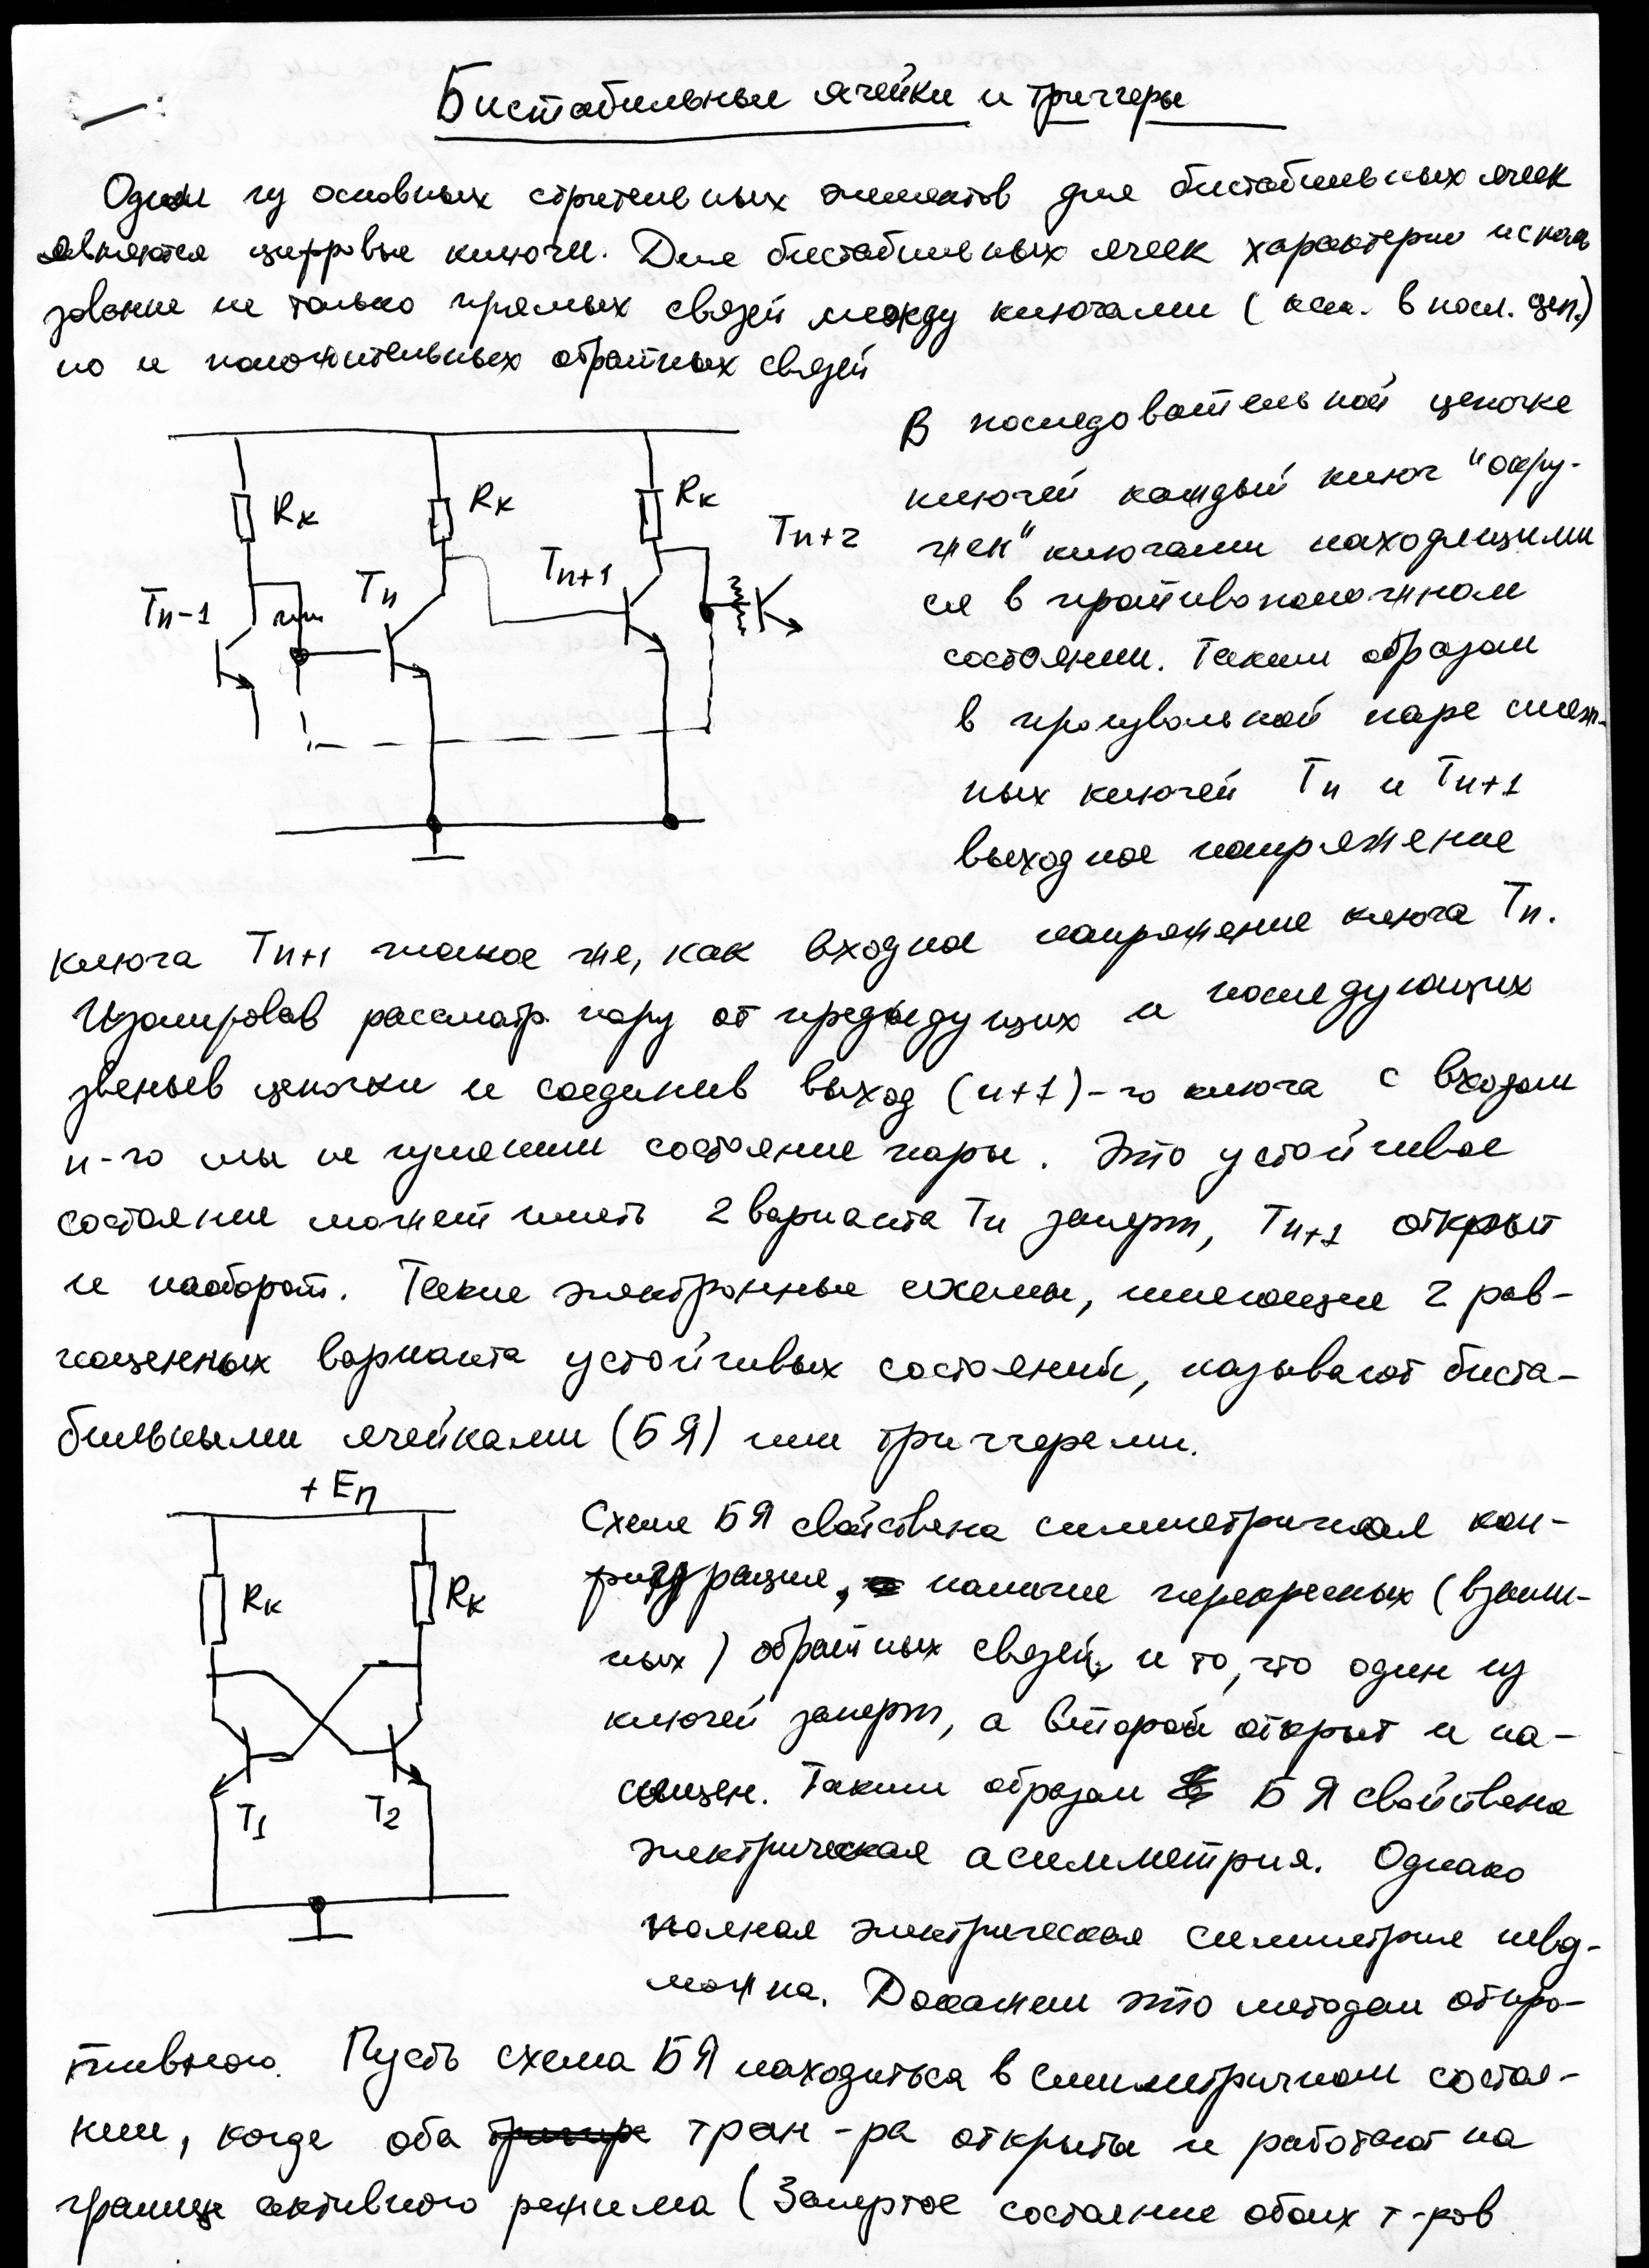 Бистабильные ячейки и триггеры
Одним из основных строительных элементов для бистабильных ячеек
являются цифровые ключи. Для бистабильных ячеек характерно исполь
зование не только прямых связей между ключами (как в посл. цеп.)
но и положительных обратных связей
В последовательной цепочке
ключей каждый ключ "окру-
жен" ключами находящими
ся в противоположном
состоянии. Таким образом
в произвольной паре смеж-
ных ключей Tn и Tn+1
выходное напряжение
Rк
Rк
Rк
Tn+2
Tn+1
Tn
Tn-1
ключа Tn+1 такое же, как входное напряжение ключа Tn.
Изолировав рассматр. пару от предыдущих и последующих
звеньев цепочки и соединив выход (n+1)-го ключа с входом
n-го мы не изменим состояние пары. Это устойчивое
состояние может иметь 2 варианта Tn заперт, Tn+1 открыт
и наоборот. Такие электронные схемы, имеющие 2 рав-
ноценных варианта устойчивых состояний, называют биста-
бильными ячейками (БЯ) или триггерами.
+ Eп
Rк
Rк
T1
T2
Схеме БЯ свойствена симметричная кон-
фигурация, наличие перекресных (взаим-
ных) обратных связей, и то, что один из
ключей заперт, а второй открыт и на-
сыщен. Таким образом БЯ свойствена
электрическая асимметрия. Однако
полная электрическая симметрия невоз-
можна. Докажем это методом от про-
тивного. Пусть схема БЯ находиться в симметричном состоя-
нии, когда оба тран-ра открыты и работают на
границе активного режима (Запертое состояние обоих т-ров